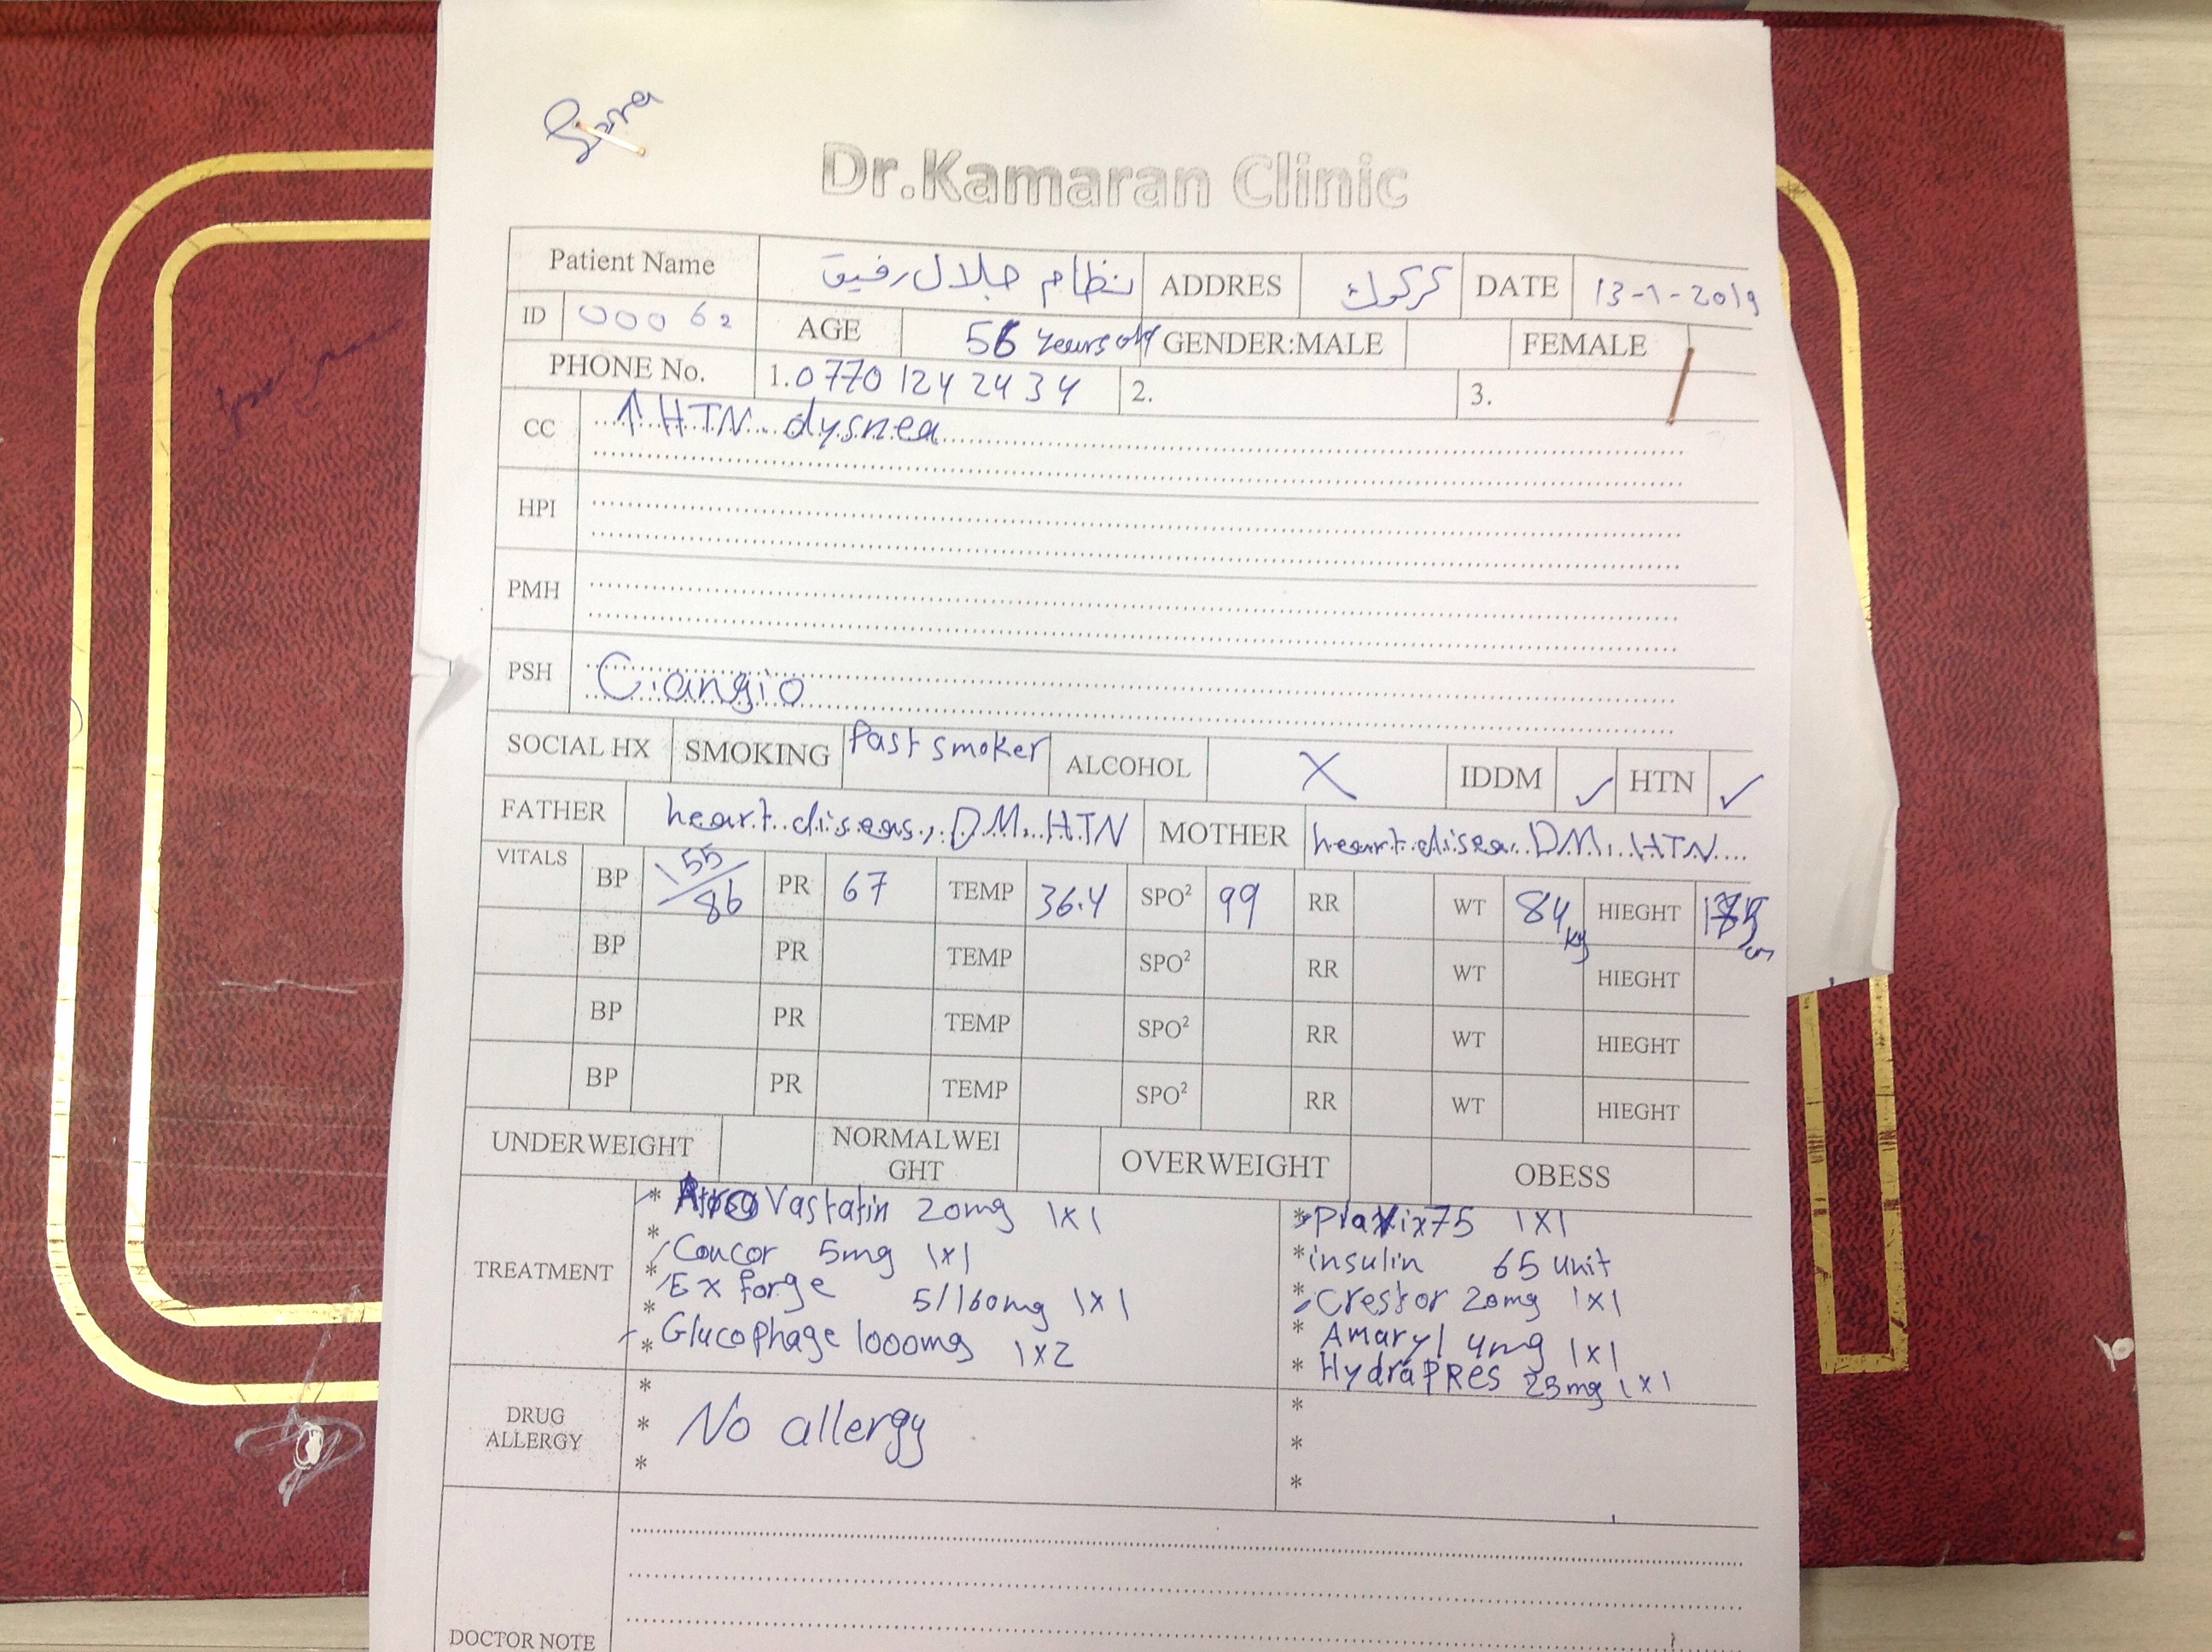 Dr.Kamaran Clinic
Patient Name نظام جلال رفيق ADDRES كركوك DATE 13-1-2019
ID 00062 AGE 56 years old GENDER:MALE FEMALE
PHONE No. 1.0770 124 24 34 2. 3.
CC ↑HTN dysnea
HPI
PMH
PSH C.angio
SOCIAL HX SMOKING Past smoker ALCOHOL X IDDM ✓ HTN ✓
FATHER heart diseas, DM, HTN MOTHER heart disea DM, HTN
VITALS BP 155/86 PR 67 TEMP 36.4 SPO² 99 RR WT 84 kg HIEGHT cm
BP PR TEMP SPO² RR WT HIEGHT
BP PR TEMP SPO² RR WT HIEGHT
BP PR TEMP SPO² RR WT HIEGHT
UNDERWEIGHT NORMALWEI
GHT OVERWEIGHT OBESS
TREATMENT
* Vastatin 20mg 1x1
* Concor 5mg 1x1
* Ex forge 5/160mg 1x1
* Glucophage 1000mg 1x2
* Plavix75 1x1
* insulin 65 unit
* Crestor 20mg 1x1
* Amaryl 4mg 1x1
* HydraPRes 25mg 1x1
DRUG
ALLERGY
* No allergy
*
*
*
*
*
DOCTOR NOTE